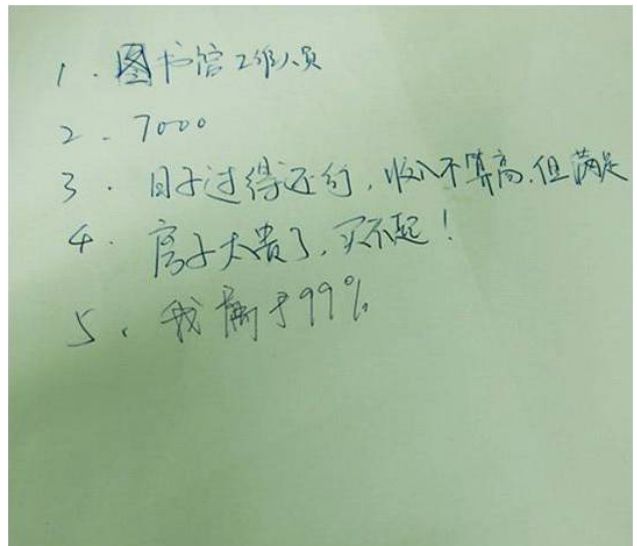 1. 图书馆工作人员
2. 7000
3. 日子过得还行,收入不算高.但满足
4. 房子太贵了,买不起!
5. 我属于99%